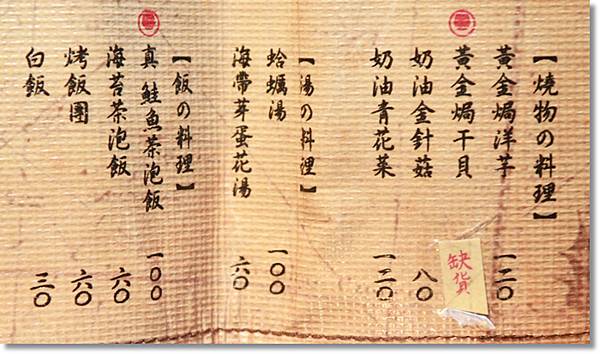 【燒物の料理】
黃金焗洋芋 一二〇
黃金焗干貝 缺貨
奶油金針菇 八〇
奶油青花菜 一二〇
【湯の料理】
蛤蠣湯 一〇〇
海帶芽蛋花湯 六〇
【飯の料理】
真 鮭魚茶泡飯 一〇〇
海苔茶泡飯 六〇
烤飯團 六〇
白飯 三〇